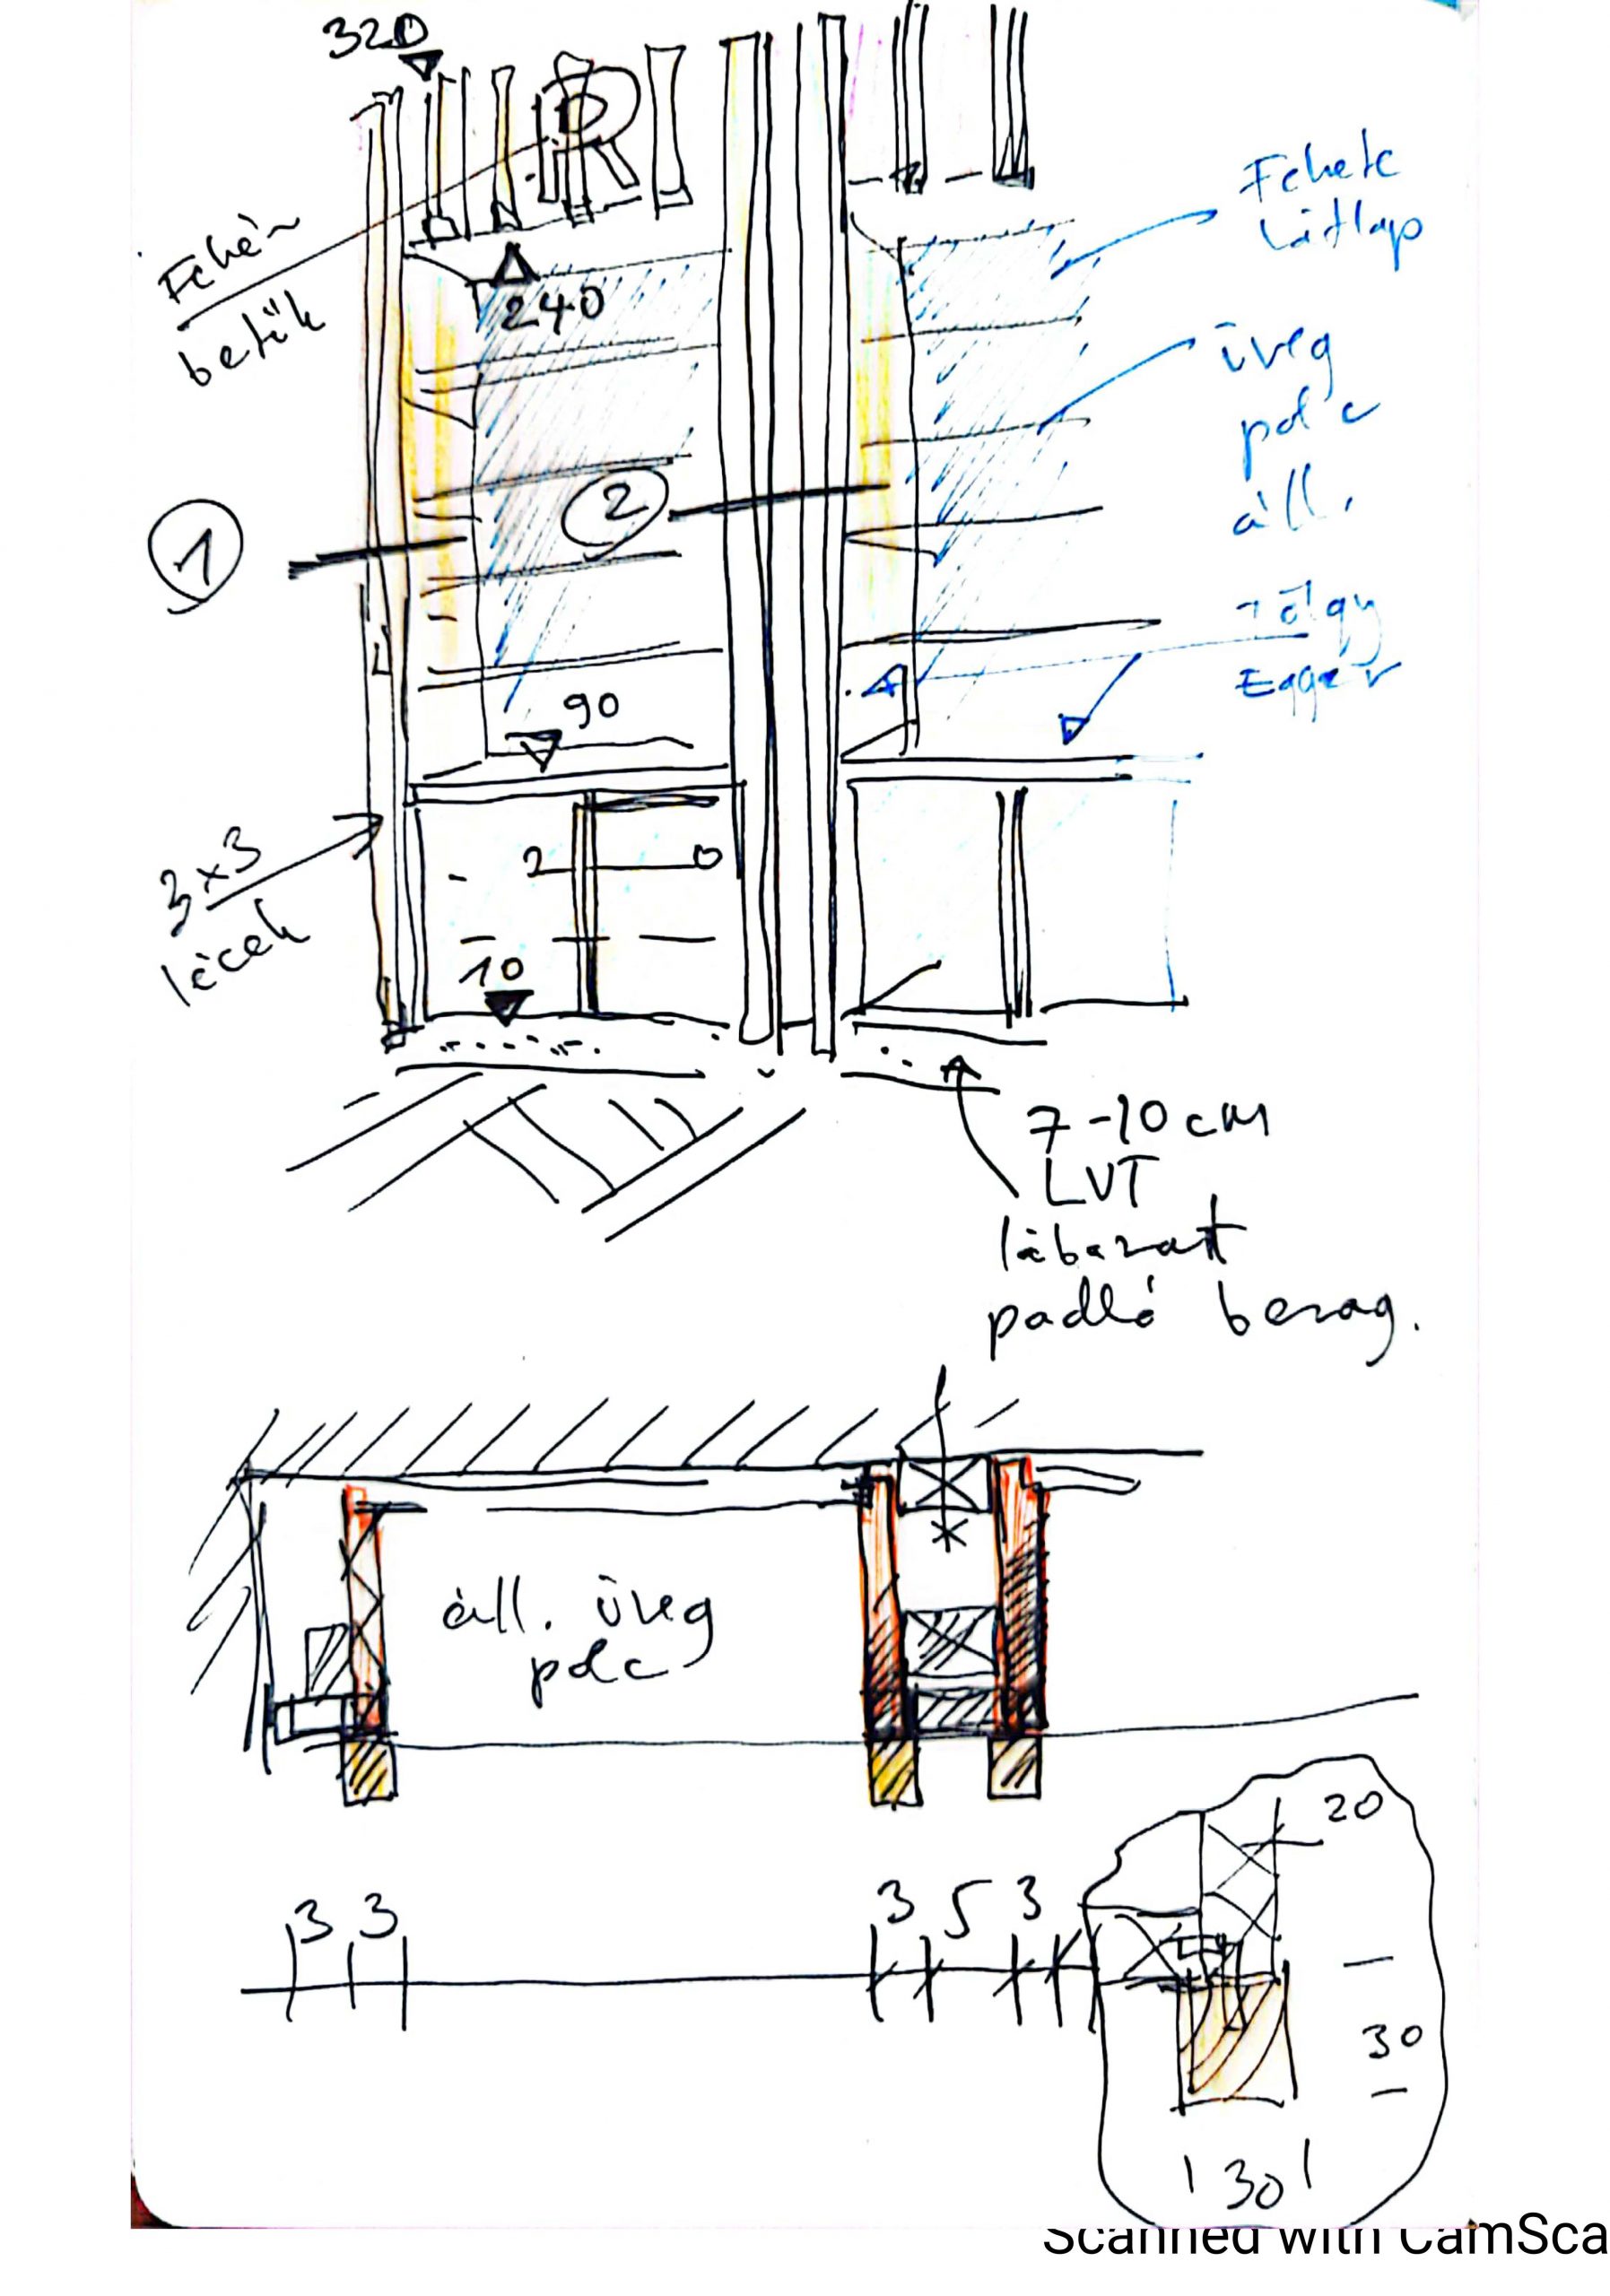 320
R
Fehér
betűk
240
Fekete
hátlap
üveg
polc
áll.
1
2
Tölgy
Egger
90
3x3
lécek
2
10
7-10 cm
LVT
lábazat
padló berag.
áll. üveg
polc
20
3 3
3 5 3
30
30
Scanned with CamSca